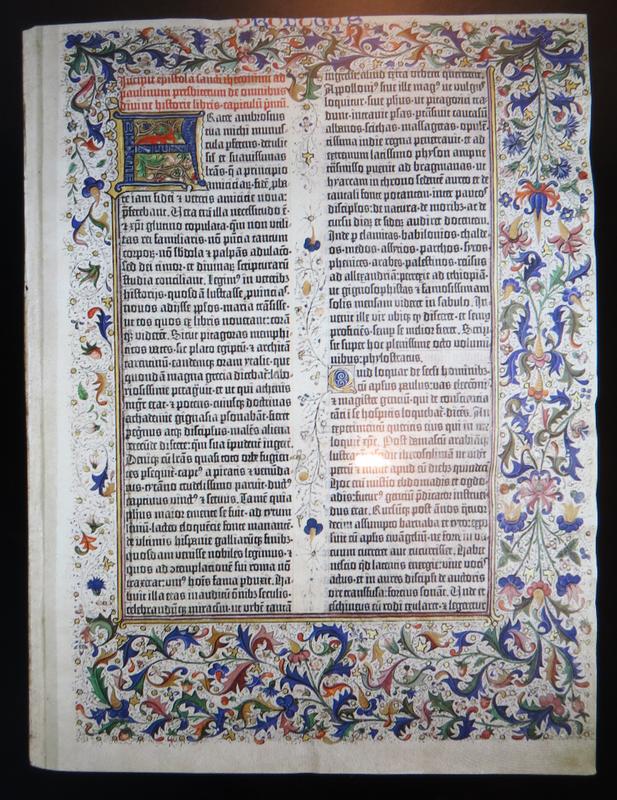 PROLOGUS
Incipit epistola sancti iheronimi ad
paulinum presbiterum de omnibus
divine historie libris capitulū pmū
Frater ambrosius
tua michi munus
cula pferens·detulit
sil et suavissimas
lrās·q̄ a principio
amiciciar·fidē pba
te iam fidei ⁊ veteris amicicie nova
pferebant. Vera eni illa necessitudo ē·
⁊ xpi glutino copulata·qm non utili
tas rei familiaris·nō pntia tantum
corporū·nō sbdola ⁊ palpās adulaco·
sed dei timor·et divinarū scripturarū
studia conciliant. Legimus in veterib
historijs·quosdā lustrasse puincias·
novos adijsse plos·maria trāsisse·
ut eos quos ex libris noverant: corā
qz viderēt. Sicut pitagoras memphi
ticos vates·sic plato egiptū·⁊ architā
tarentinū·eandemqz oram ytalie·que
quondā magna grecia dicebat̄: labo
riosissime peragravit·et ut qui athenis
mgr erat·⁊ potens·cuiusqz doctrinas
achademie gignasia psonabāt·fieret
peginus atqz discipulus·malēs aliena
verecunde discere: qm sua īpudent̄ ingerere.
Deniqz cū lrās quasi toto orbe fugien
tes psequit̄·capt⁹ a piratis ⁊ venunda
tus·tyranno crudelissimo paruit·duct⁹
captivus vinct⁹ ⁊ servus. Tamē quia
phus maior emente se fuit·ad tytum
livium·lacteo eloquēcie fonte manantē
de ultimis hispanie galliarūqz finib⁹
quosdam venisse nobiles legimus·⁊
quos ad ꝯtemplacionē sui roma nō
traxerat: uni⁹ hoīs fama pduxit. Ha
buit illa etas inauditū oīnib⁹ seculis·
celebrandūqz miraculū·ut urbē tantā
ingressi aliud extra urbem quererent.
Apolloni⁹ sive ille mag⁹ ut vulgus
loquitur·sive phus ut pitagorici tra
dunt·intravit psas·pt̄nsivit caucasū
albanos·scithas·massagetas·opulē
tissima indie regna penetravit·et ad
extremum latissimo physon ampne
trāsmisso puenit ad bragmanas·ut
hyarcam in throno sedentē aureo et de
tantali fonte potantem·inter paucos
discipulos·de natura·de moribus·ac de
cursu dierū et siderū audiret docentem.
Inde p elamitas·babilonios·chalde
os·medos·assyrios·parthos·syros·
phenices·arabes·palestinos·reversus
ad allexandriā: perrexit ad ethiopiā·
ut gignosophistas ⁊ famosissimam
solis mensam videret in sabulo. In
venit ille vir ubiqz qd disceret·et semp
proficiēs·semp se melior fieret. Scrip
sit super hoc plenissime octo volumi
nibus: phylostratus.
Quid loquar de secli hominib⁹·
cū apl̄us paulus·vas electionis·
⁊ magister gentiū·qui de consciencia
tāti ī se hospitis loquebat̄·dicēs. An
experimentū queritis eius qui in me
loquit̄ xpc. Post damascū arabiāqz
lustratā: ascēdit iherosolimā ut vidēt
petrū ⁊ māsit apud eū diebus quindeci.
Hoc eni misterio ebdomadis et ogdo
adis: futur⁹ gentiū pdicator instruen
dus erat. Rursūqz post ānos quatuor
decim assumpto barnaba et tyto: exposuit
cū aplis euangeliū·ne forte in va
cuum curreret aut cucurrisset. Habet
nescio qd latentis energie: vive vocis
actus·et in aures discipli de auctoris
ore transfusa: forcius sonat. Unde et
eschineus cū rodi exularet·⁊ legeretur